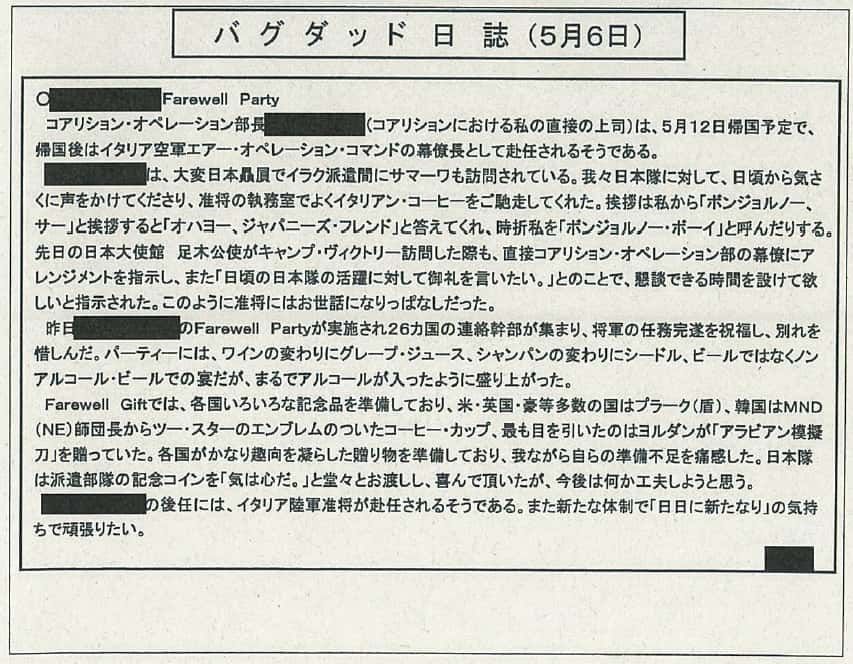 バグダッド日誌（５月６日）
○ Farewell Party
コアリション・オペレーション部長 （コアリションにおける私の直接の上司）は、５月１２日帰国予定で、
帰国後はイタリア空軍エアー・オペレーション・コマンドの幕僚長として赴任されるそうである。
は、大変日本贔屓でイラク派遣間にサマーワも訪問されている。我々日本隊に対して、日頃から気さ
くに声をかけてくださり、准将の執務室でよくイタリアン・コーヒーをご馳走してくれた。挨拶は私から「ボンジョルノー、
サー」と挨拶すると「オハヨー、ジャパニーズ・フレンド」と答えてくれ、時折私を「ボンジョルノー・ボーイ」と呼んだりする。
先日の日本大使館　足木公使がキャンプ・ヴィクトリー訪問した際も、直接コアリション・オペレーション部の幕僚にア
レンジメントを指示し、また「日頃の日本隊の活躍に対して御礼を言いたい。」とのことで、懇談できる時間を設けて欲
しいと指示された。このように准将にはお世話になりっぱなしだった。
昨日 のFarewell Partyが実施され２６カ国の連絡幹部が集まり、将軍の任務完遂を祝福し、別れを
惜しんだ。パーティーには、ワインの変わりにグレープ・ジュース、シャンパンの変わりにシードル、ビールではなくノン
アルコール・ビールでの宴だが、まるでアルコールが入ったように盛り上がった。
Farewell Giftでは、各国いろいろな記念品を準備しており、米・英国・豪等多数の国はプラーク（盾）、韓国はMND
（NE）師団長からツー・スターのエンブレムのついたコーヒー・カップ、最も目を引いたのはヨルダンが「アラビアン模擬
刀」を贈っていた。各国がかなり趣向を凝らした贈り物を準備しており、我ながら自らの準備不足を痛感した。日本隊
は派遣部隊の記念コインを「気は心だ。」と堂々とお渡しし、喜んで頂いたが、今後は何か工夫しようと思う。
の後任には、イタリア陸軍准将が赴任されるそうである。また新たな体制で「日日に新たなり」の気持
ちで頑張りたい。